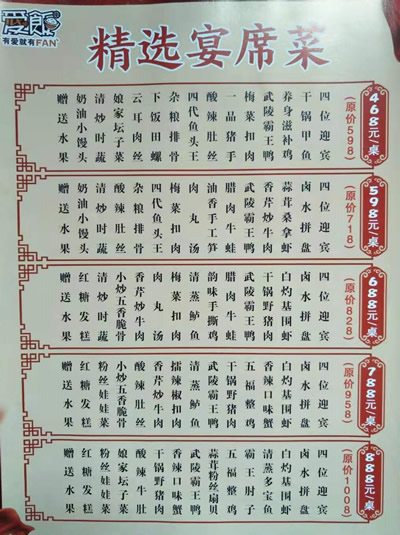 爱郎
有爱就有FAN
精选宴席菜
468元/桌
(原价598)
四位迎宾
干锅甲鱼
养身滋补鸡
武陵霸王鸭
梅菜扣肉
一品猪手
酸辣肚丝
四代鱼头王
杂粮排骨
下饭田螺
云耳肉丝
娘家坛子菜
清炒时蔬
奶油小馒头
赠送水果
598元/桌
(原价718)
四位迎宾
卤水拼盘
蒜茸桑拿虾
香芹炒牛肉
武陵霸王鸭
腊肉牛蛙
油香手工笋
肉丸汤
梅菜扣肉
四代鱼头王
杂粮排骨
酸辣肚丝
清炒时蔬
奶油小馒头
赠送水果
688元/桌
(原价828)
四位迎宾
卤水拼盘
白灼基围虾
干锅野猪肉
武陵霸王鸭
腊肉牛蛙
韵味手撕鸡
清蒸鲈鱼
梅菜扣肉
肉丸汤
香芹炒牛肉
小炒五香脆骨
清炒时蔬
红糖发糕
赠送水果
788元/桌
(原价958)
四位迎宾
卤水拼盘
白灼基围虾
香辣口味蟹
五福整鸡
干锅野猪肉
武陵霸王鸭
清蒸鲈鱼
擂辣椒扣肉
香芹炒牛肉
酸辣肚丝
小炒五香脆骨
粉丝娃娃菜
红糖发糕
赠送水果
888元/桌
(原价1008)
四位迎宾
卤水拼盘
白灼基围虾
清蒸多宝鱼
霸王肘子
五福整鸡
蒜茸粉丝扇贝
武陵霸王鸭
香辣口味蟹
干锅野猪肉
酸辣牛肚
娘家坛子菜
粉丝娃娃菜
红糖发糕
赠送水果